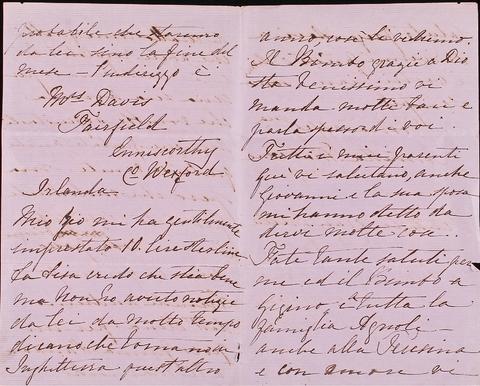 probabile che staremo
da lei sino la fine del
mese – l'indirizzo è
Mrs Davis
Fairfield
Enniscorthy
Co Wexford
Irlanda
Mio Zio mi ha gentilmente
imprestato 10. lire sterline
La Lisa credo che stia bene
ma non ho avuto notizie
da lei da molto tempo
dicano che torna in
Inghilterra quest'altro
anno, così li vedremo.
Il Bimbo grazie a Dio
sta benissimo vi
manda molti baci e
parla spesso di voi.
Tutti i miei parenti
qui vi salutano, anche
Giovanni e la sua sposa
mi hanno detto da
dirvi molte cose.
Fate tante saluti per
me ed il Bimbo a
Gigino e a tutta la
famiglia Agnoli –
anche alla
e con amore vi